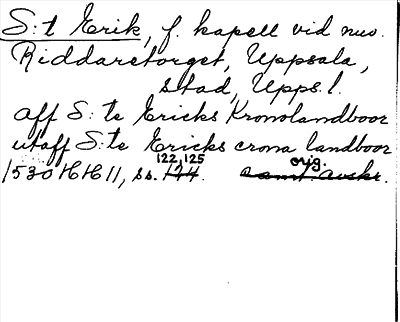 S:t Erik, f. kapell vid nuv.
Riddaretorget, Uppsala,
stad, Upps. l.
aff S:te Ericks Kronolandboor
utaff S:te Ericks crona landboor
1530 16 16 11, ss. 122, 125 124. orig. samt. avskr.